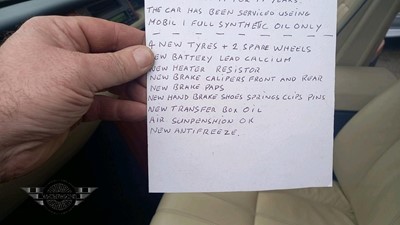 THE CAR HAS BEEN SERVICED USEING
MOBIL 1 FULL SYNTHETIC OIL ONLY
4 NEW TYRES + 2 SPARE WHEELS
NEW BATTERY LEAD CALCIUM
NEW HEATER RESISTOR
NEW BRAKE CALIPERS FRONT AND REAR
NEW BRAKE PADS
NEW HAND BRAKE SHOES SPRINGS CLIPS PINS
NEW TRANSFER BOX OIL
AIR SUNPENSHION OK
NEW ANTIFREEZE.